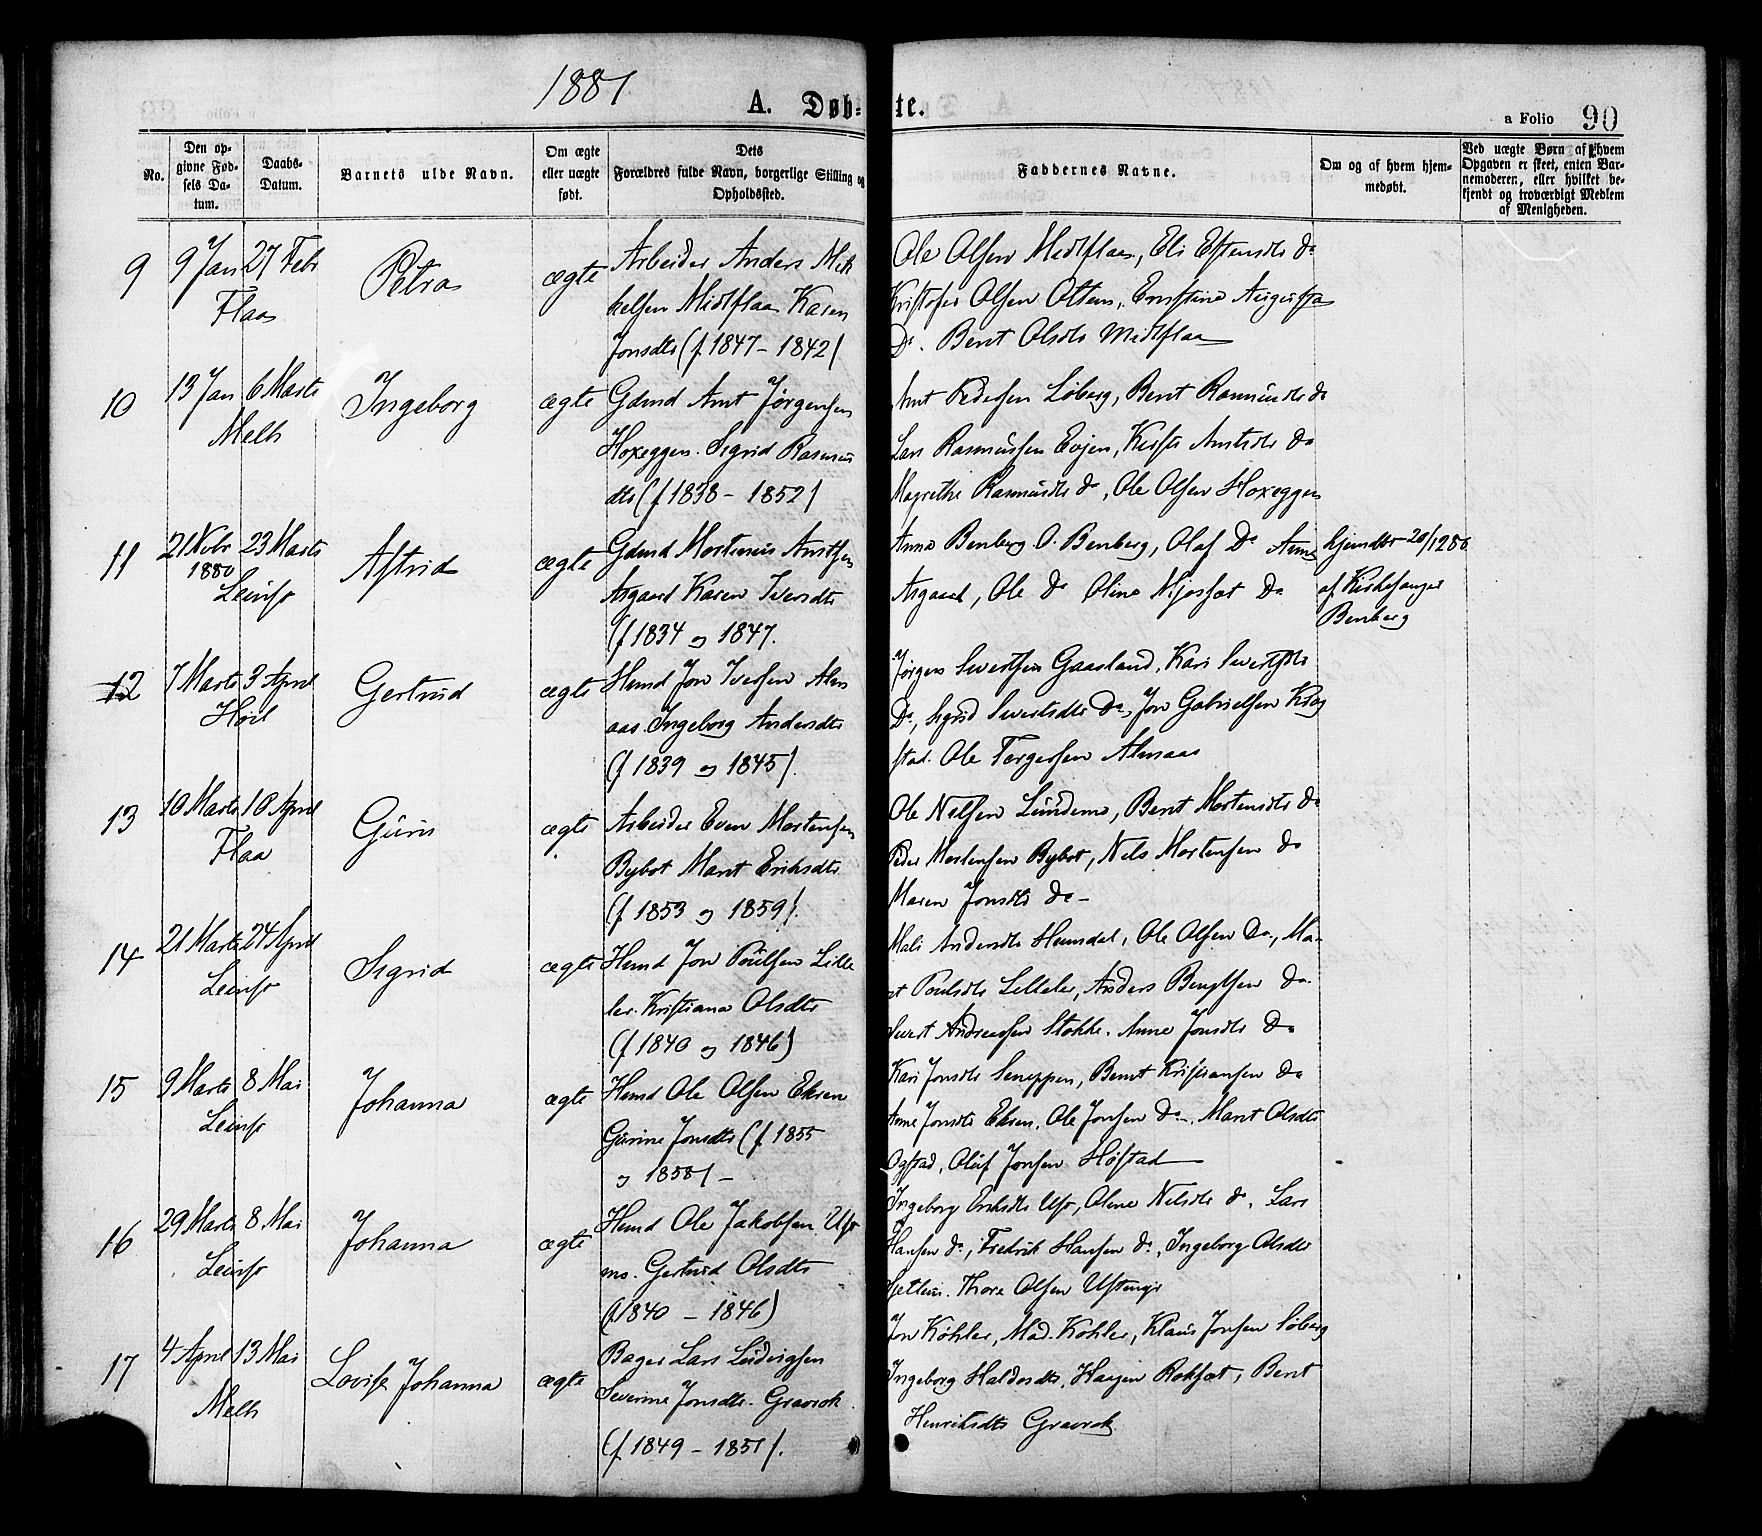 1881
A. Døb-
te.
a Folio 90
No.
Den op-
givne Fød-
sels Da-
tum.
Daabs-
Datum.
Barnets fulde Navn.
Om ægte
eller uægte
født.
Dets
Forældres fulde Navn, borgerlige Stilling og
Opholdssted.
Faddernes Navne.
Om og af hvem hjem-
medøbt.
Ved uægte Børn af hvem
Opgaven er skeet, enten Bar-
nemoderen, eller hvilket be-
kjendt og troværdigt Medlem
af Menigheden.
9
9 Jan
27 Febr
Flaa
Petra
ægte
Arbeider Anders Mik
kelsen Midtflaa Karen
Jonsdtr (f 1847 - 1842)
Ole Olsen Midtflaa, Eli Estensdtr Do
Kristofer Olsen Olteus, Ernstine Augusta
Do. Berit Olsdtr Midtflaa
10
13 Jan
6 Marts
Melh
Ingeborg
ægte
Gdmd Arnt Jørgensen
Hoxeggen. Sigrid Rasmus
dtr (f 1838 - 1852)
Arnt Pedersen Løberg, Berit Rasmusdtr do
Lars Rasmussen Evjen, Kirsti Arntsdtr Do
Magrethe Rasmusdtr do, Ole Olsen Hoxeggen
11
21 Nvbr
1880
23 Marts
Leinst
Astrid
ægte
Gdmd Mortinus Arntsen
Asgaard Karen Iversdtr
(f 1834 og 1847.
Anna Benberg O. Benberg, Olaf Do Anne
Asgaard, Ole Do Oline Mjøsset Do
hjemdbt 20/12 80
af Kirkesanger
Benberg
12
7 Marts
3 April
Høil
Gertrud
ægte
Hsmd Jon Iversen Alm
aas. Ingeborg Andersdtr
(f 1839 og 1845).
Jørgen Sivertsen Gaasland, Kari Sivertsdtr
Do, Sigrid Sivertsdtr Do, Jon Gabrielsen Krog
stad. Ole Torgersen Almaas
13
10 Marts
10 April
Flaa
Guru
ægte
Arbeider Even Mortensen
Bybot Marit Eriksdtr
(f 1853 og 1859).
Ole Nilsen Lundemo, Berit Mortensdtr do
Peder Mortensen Bybot, Nils Mortensen Do
Maren Jonsdtr Do -
14
21 Marts
24 April
Leinst
Sigrid
ægte
Hsmd Jon Poulsen Lille
ler. Kristiana Olsdtr
(f 1840 og 1846)
Mali Andersdtr Heimdal, Ole Olsen Do, Ma-
rit Poulsdtr Lilleler, Anders Bengtsen do.
Sivert Andreassen Stokke. Anne Jonsdtr Do
15
9 Marts
8 Mai
Leinst
Johanna
ægte
Hsmd Ole Olsen Ekren
Gurine Jonsdtr (f 1855
og 1858) -
Kari Jonsdtr Sneppen, Bernt Kristiansen Do
Anne Jonsdtr Ekren. Ole Jonsen Do -. Marit Olsdtr
Ogstad, Oluf Jonsen Høstad
16
29 Marts
8 Mai
Leinst
Johanna
ægte
Hsmd Ole Jakobsen Ust
mo. Gertrud Olsdtr
(f 1840 - 1846)
Ingeborg Eriksdtr Ust, Oline Nilsdtr do, Lars
Hansen do, Fredrik Hansen do, Ingeborg Olsdtr
Thore Olsen
17
4 April
13 Mai
Melh
Lovise Johanna
ægte
Bager Lars Ludvigsen
Severine Jonsdtr. Gravrok
(f 1849 - 1851).
Jon Köhler, Mad. Köhler, Klaus Jonsen Søberg
Ingeborg Haldorsdtr, Haagen Rokset, Berit
Henriksdtr Gravrok